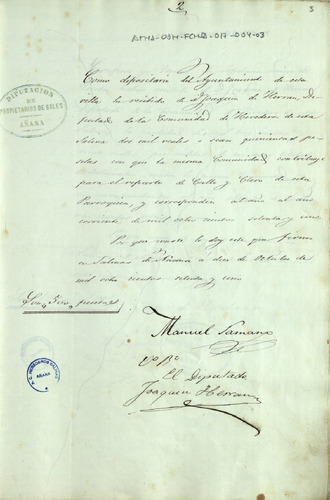 2
3
ATHA-DAH-FCHA-017-004-03
DIPUTACION
DE
PROPIETARIOS DE SALES
AÑANA
Como depositario del Ayuntamiento de esta
villa he recibido de D. Joaquin de Herran, Di-
putado de la Comunidad de Herederos de esta
Salina dos mil reales o sean quinientas pe-
setas con que la misma Comunidad contribuye
para el reparto de Culto y Clero de esta
Parroquia, y corresponden al año
corriente de mil ocho cientos setenta y uno
Y para que conste lo doy este que firmo
en Salinas de Añana a diez de Octubre de
mil ocho cientos setenta y uno
Son, 500, pesetas
Manuel Samano
Vº Bº
El Diputado
Joaquin Herran
AÑANA